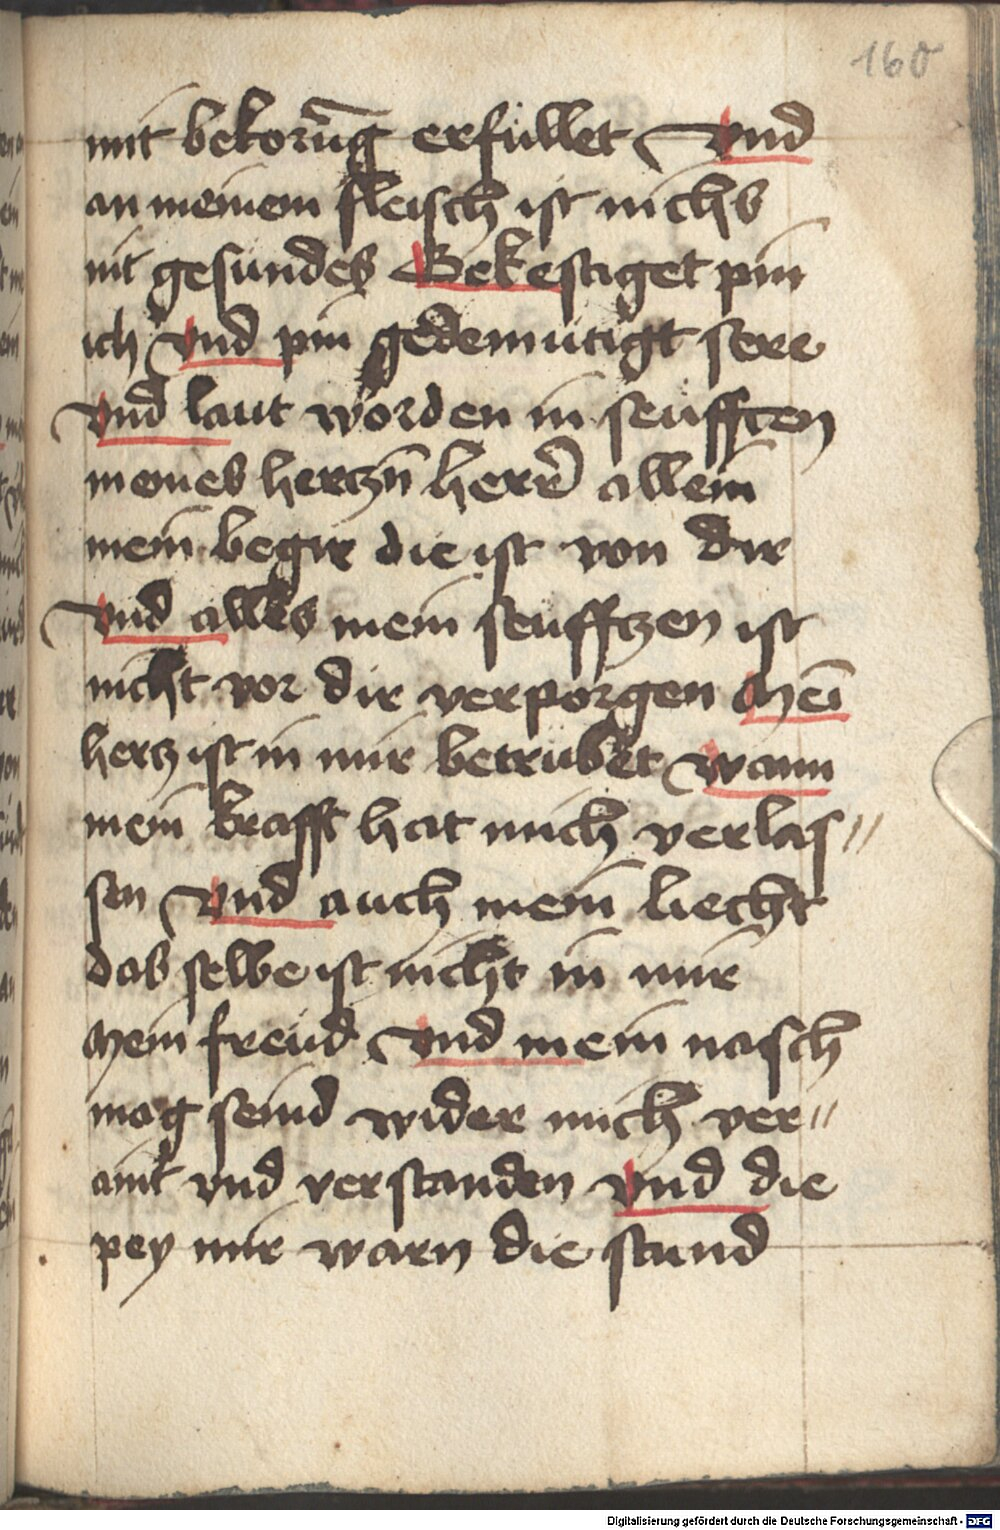 160
mit bekorūg erfüllet Vnd
an meinem fleisch ist nichs
nit gesundes Bekestiget pin
ich Vnd pin gedemütigt sere
Vnd laut worden in seufften
meines hertzn̄ herr̄ allein
mein begir die ist von dir
Vnd alles mein seufftzen ist
nicht vor dir verporgen Meī
hertz ist in mir betrübet Wann
mein krafft hat mich verlas〃
sen Vnd auch mein liecht
das selbe ist nicht in mir
Mein freüd Vnd mein nasch
mag seind wider mich ver〃
aint vnd verstanden Vnd die
pey mir warn die stund
Digitalisierung gefördert durch die Deutsche Forschungsgemeinschaft - DFG